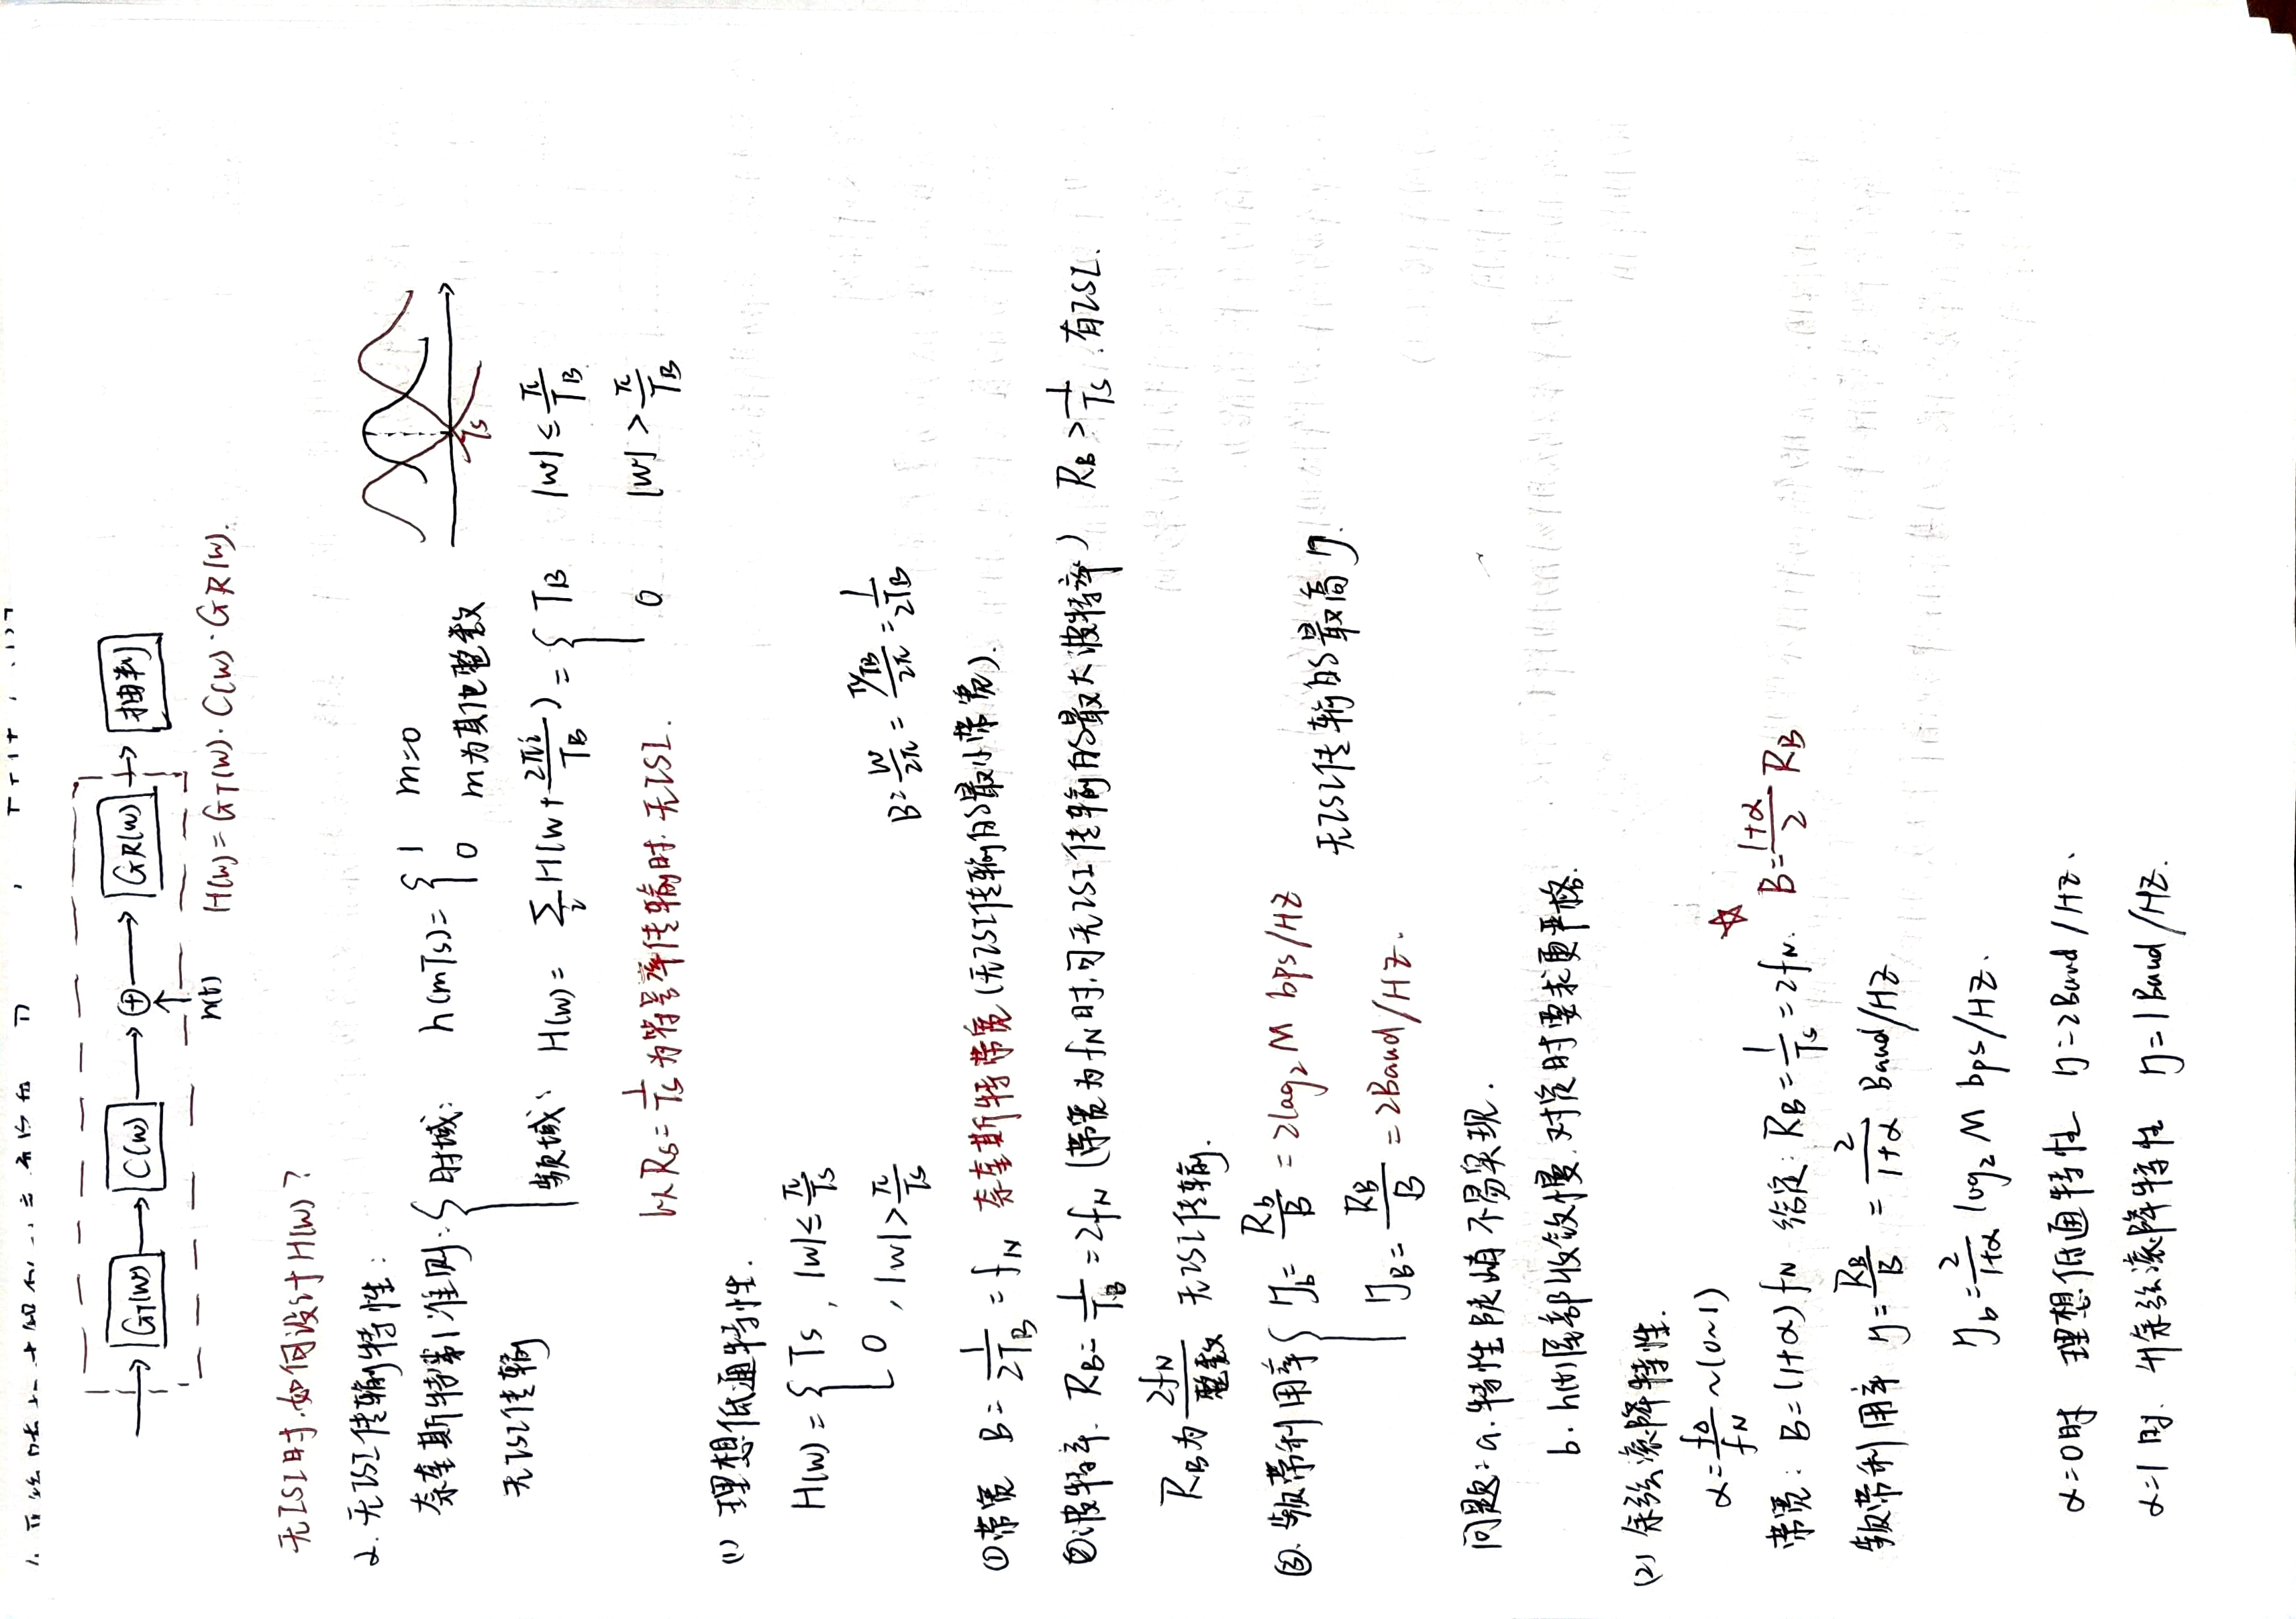 GT(w) C(w) ⊕ GR(w) 抽判
n(t) H(w)=GT(w)·C(w)·GR(w).
无ISI时.如何设计H(w)?
2. 无ISI传输特性:
奈奎斯特第1准则: 时域: h(mTs)= { 1 m=0
0 m为其他整数
Ts
无ISI传输
频域: H(w)= ∑i H(w+2πi/TB) = { TB |w|≤π/TB
0 |w|>π/TB
以Rs=1/Ts为符号率传输时.无ISI.
(1) 理想低通特性.
H(w)= { Ts, |w|≤π/Ts
0, |w|>π/Ts
B=w/2π=(π/TB)/2π=1/2TB
①带宽 B=1/2TB=fN 奈奎斯特带宽(无ISI传输的最小带宽).
②波特率. RB=1/TB=2fN (带宽为fN时,可无ISI传输的最大波特率) RB>1/Ts.有ISI.
RB为2fN/整数 无ISI传输.
③.频带利用率 { ηb=Rb/B=2log2M bps/HZ
无ISI传输的最高η.
ηB=RB/B=2Baud/HZ.
问题:a.特性陡峭不易实现.
b.h(t)尾部收敛慢.对定时要求更严格.
(2) 余弦滚降特性.
α=fΔ/fN~(0~1)
带宽: B=(1+α)fN 给定: RB=1/Ts=2fN. ☆ B=(1+α)/2 RB
频带利用率 η=RB/B=2/(1+α) Baud/HZ
ηb=2/(1+α) log2M bps/HZ.
α=0时 理想低通特性 η=2Baud/HZ.
α=1时. 升余弦滚降特性 η=1Baud/HZ.